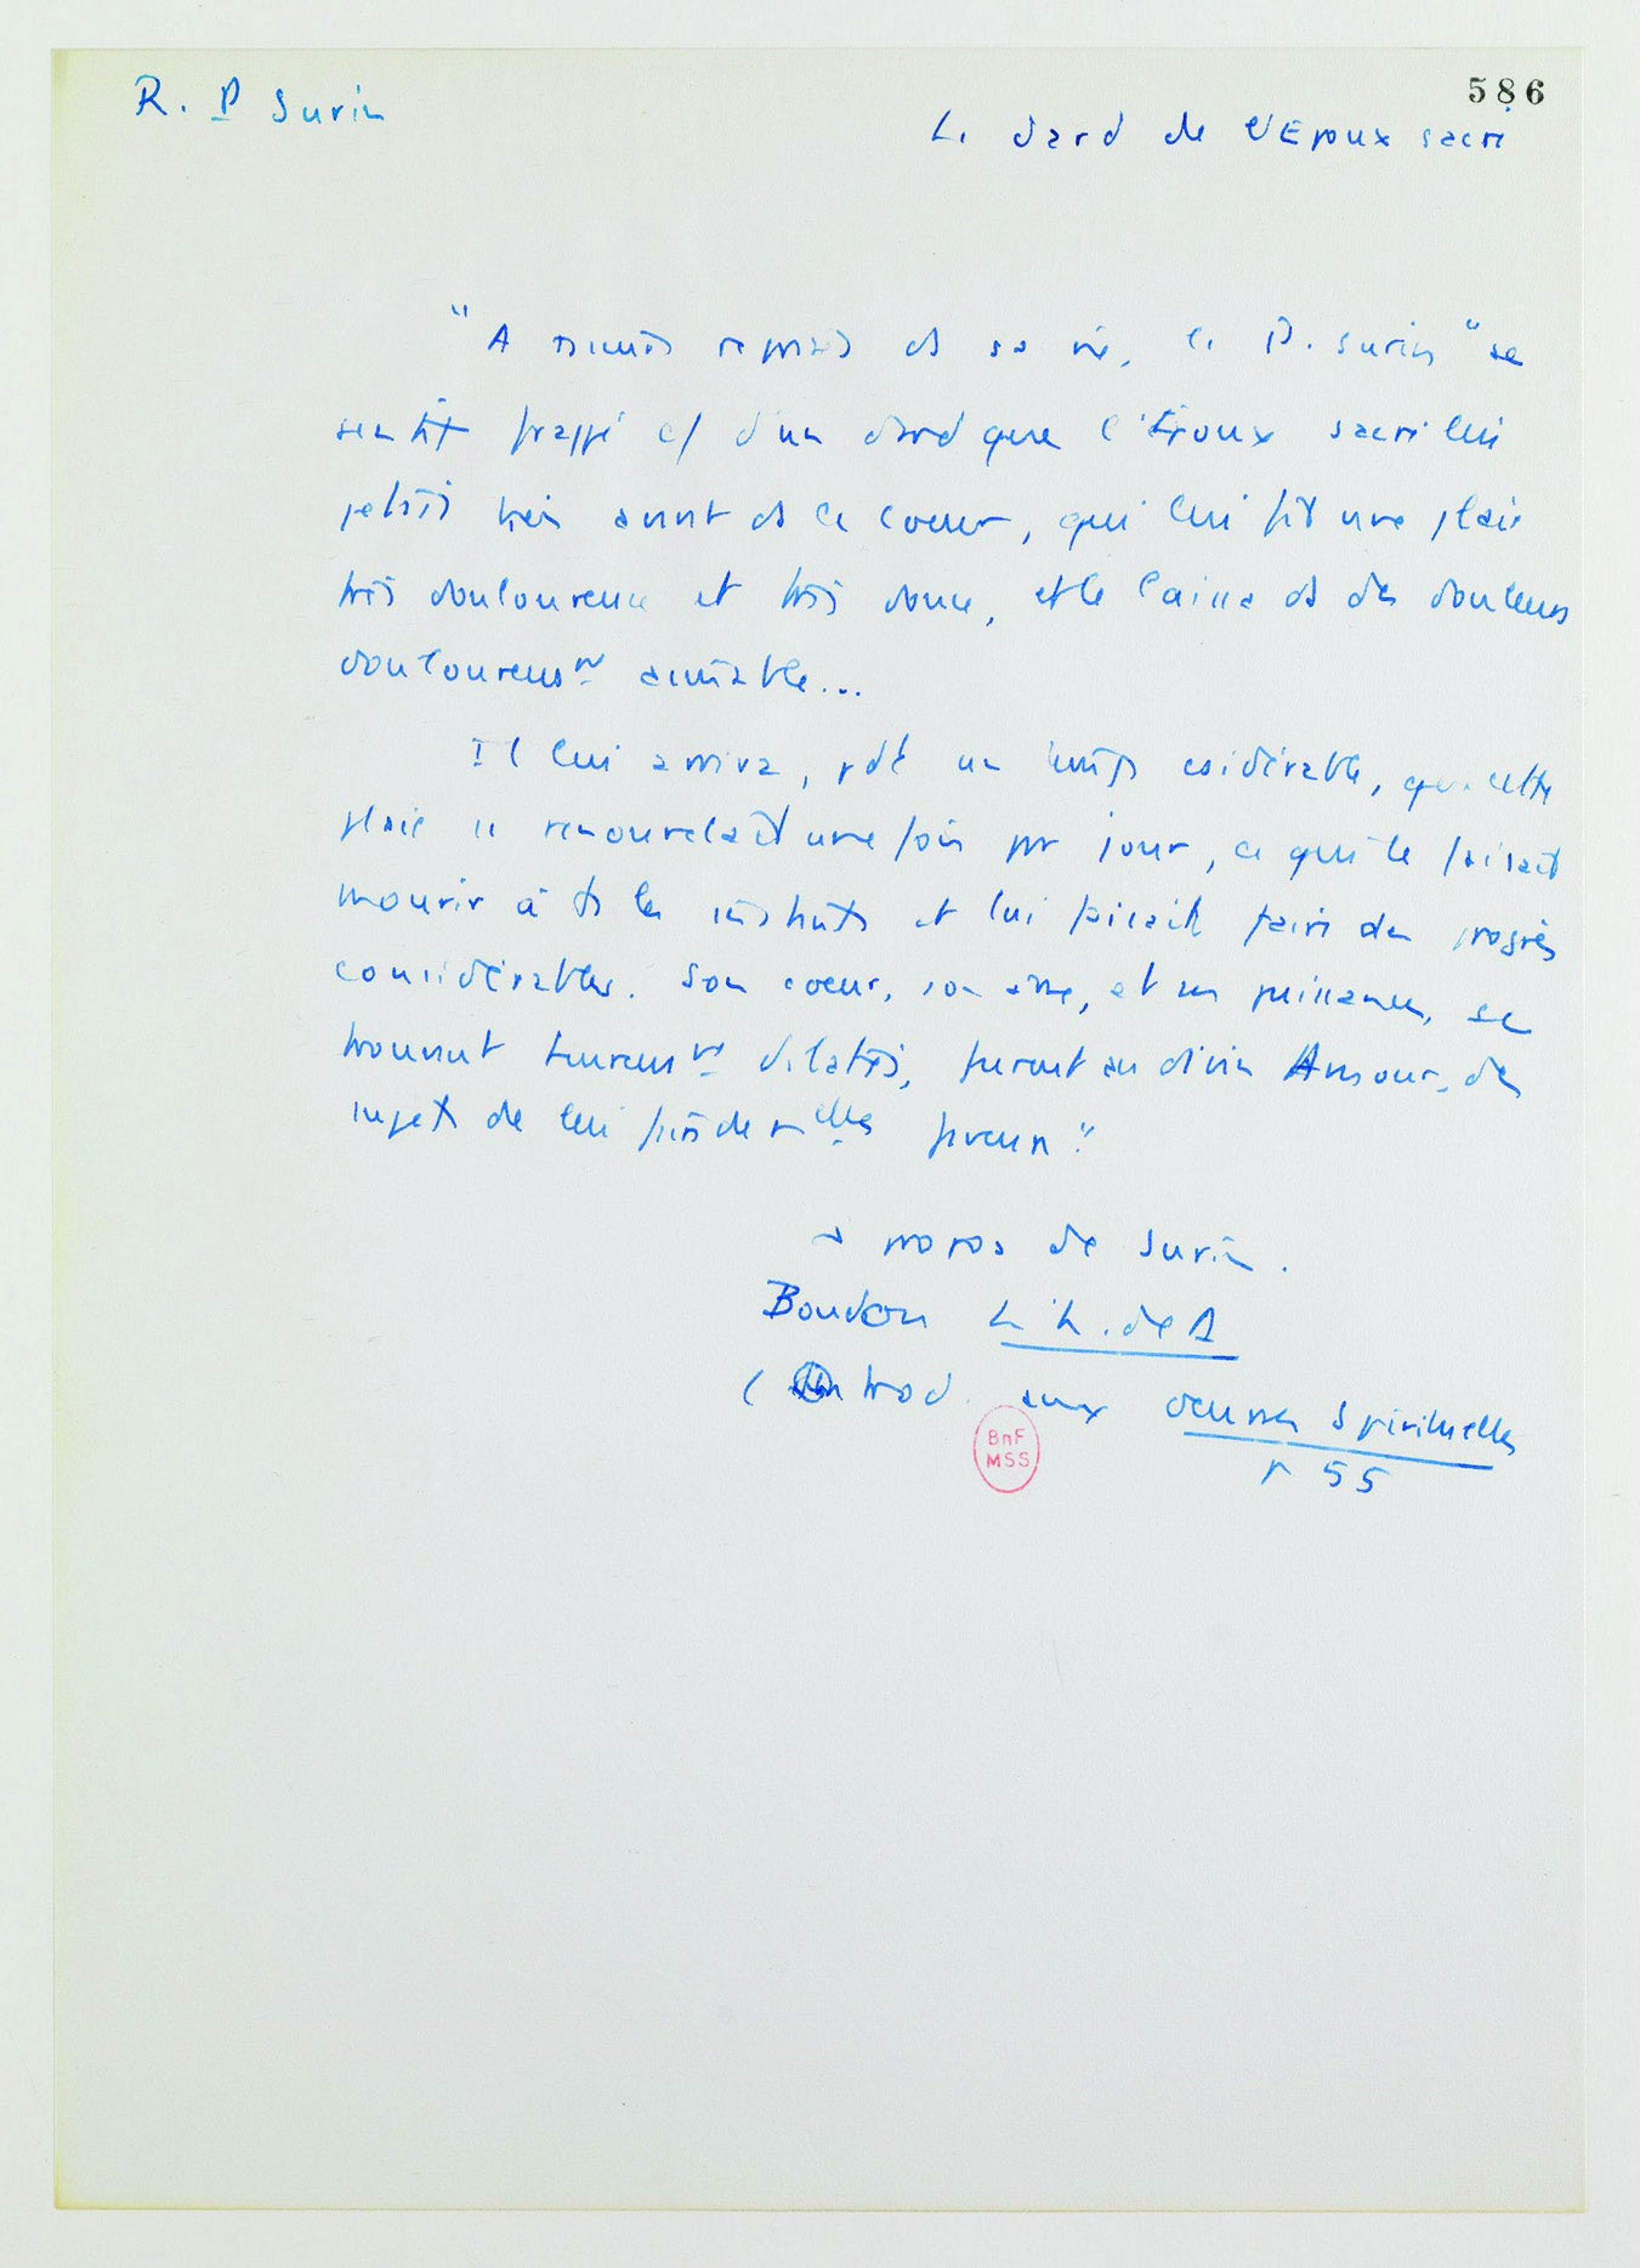 R. P Surin
586
Le dard de l'Epoux sacré
"A reprises ds sa vie, le P. Surin "se
sentit frappé c/ d'un dard que l'Epoux sacré lui
jetait très avant ds le coeur, qui lui fit une plaie
très douloureuse et très douce, et le laissa ds des douleurs
douloureusnt aimable...
Il lui arriva, pdt un temps csidérable, que cette
plaie se renouvelait une fois par jour, ce qui le faisait
mourir à ts les instants et lui faisait faire des progrès
considérables. Son coeur, son âme, et ses puissances, se
trouvant heureusnt dilatés, furent au divin Amour, des
sujets de lui faire de nelles faveurs."
à propos de Surin.
Boudon L'h. de D
(Introd. aux Oeuvres Spirituelles
p 55
BnF
MSS